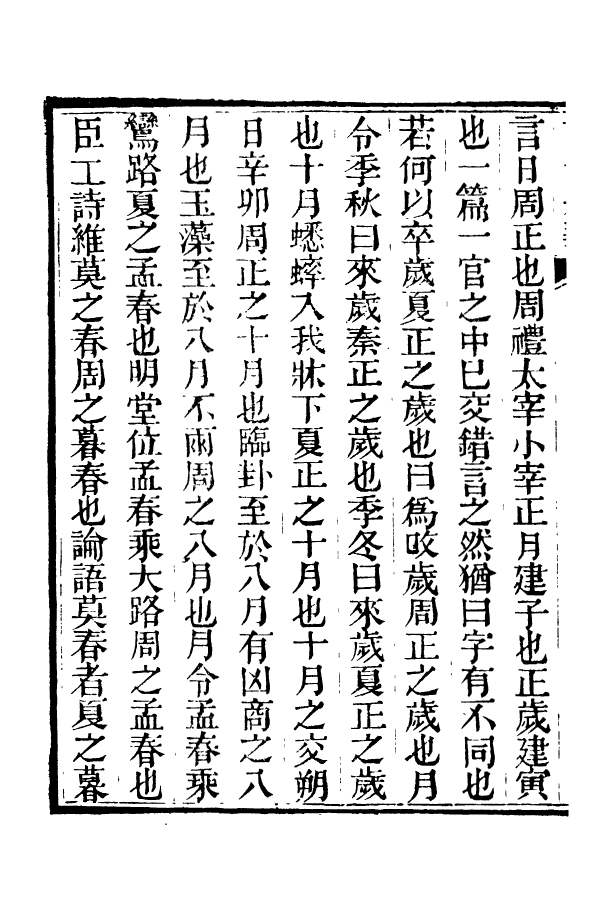 言日周正也周禮太宰小宰正月建子也正歲建寅
也一篇一官之中已交錯言之然猶曰字有不同也
若何以卒歲夏正之歲也曰爲改歲周正之歲也月
令季秋曰來歲秦正之歲也季冬曰來歲夏正之歲
也十月蟋蟀入我牀下夏正之十月也十月之交朔
日辛卯周正之十月也臨卦至於八月有凶商之八
月也玉藻至於八月不雨周之八月也月令孟春乘
鸞路夏之孟春也明堂位孟春乘大路周之孟春也
臣工詩維莫之春周之暮春也論語莫春者夏之暮